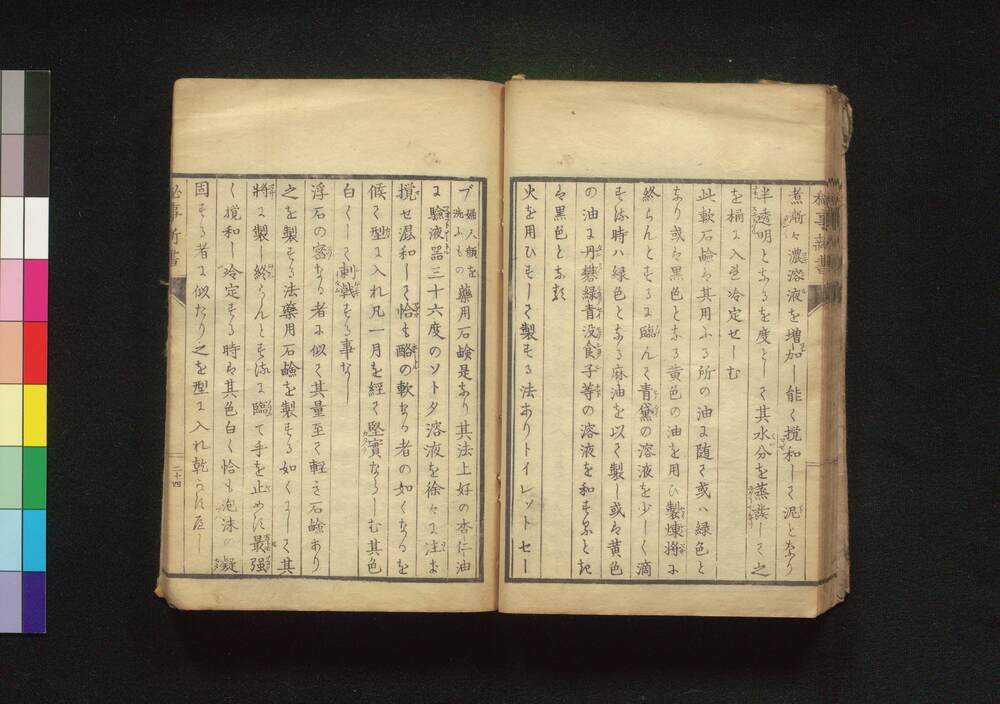 秘事新書
煮漸々濃溶液を増加し能く攪和して泥となり
半透明となるを度として其水分を蒸発して之
を桶に入き冷定せしむ
此軟石鹸は其用ふる所の油に随て或ハ緑色と
なり或は黒色となる黄色の油を用ひ製煉将に
終らんとするに臨んて青黛の溶液を少しく滴
する時ハ緑色となる麻油を以て製し或は黄色
の油に丹礬緑青没食子等の溶液を和するとき
は黒色となる
火を用ひすして製する法ありトイレットセー
プ 婦人顔を
洗ふもの 薬用石鹸是なり其法上好の杏仁油
に験液器三十六度のソートタ溶液を徐々に注き
攪せ混和して恰も酪の軟なる者の如くなるを
候て型に入れ凡一月を経て堅實ならしむ其色
白くして刺戟する事なし
浮石の密なる者に似て其量至て軽き石鹸あり
之を製する法薬用石鹸を製する如くにして其
将に製し終らんとするに臨て手を止めす最強
く攪和し冷定する時は其色白く恰も泡沫の凝
固する者に似たり之を型に入れ乾かすへし
秘事新書
二十四